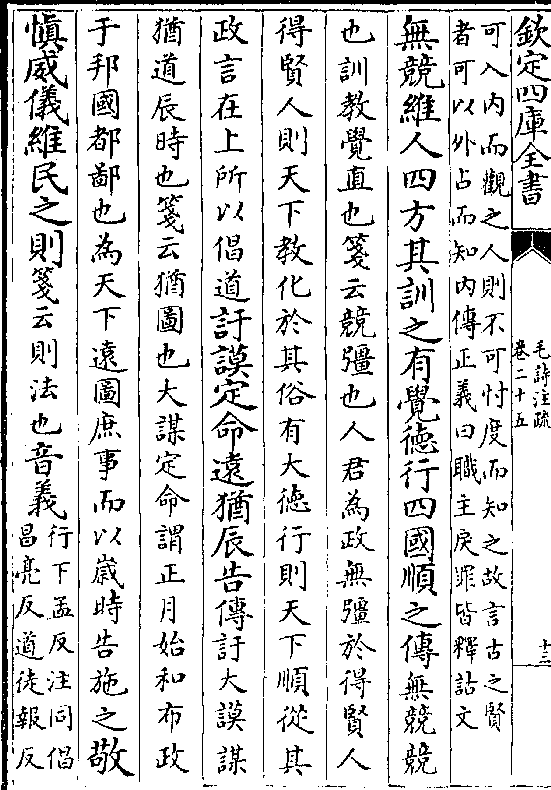 欽定四庫全書
毛詩注疏
卷二十五
十三
可入内而觀之人則不可忖度而知之故言古之賢
者可以外占而知内傳正義曰職主戾罪皆釋詁文
無競維人四方其訓之有覺徳行四國順之傳無競競
也訓教覺直也箋云競彊也人君為政無彊於得賢人
得賢人則天下教化於其俗有大徳行則天下順從其
政言在上所以倡道訏謨定命遠猶辰告傳訏大謨謀
猶道辰時也箋云猶圖也大謀定命謂正月始和布政
于邦國都鄙也為天下遠圖庶事而以歲時告施之敬
慎威儀維民之則箋云則法也音義
行下孟反注同倡
昌亮反道徒報反